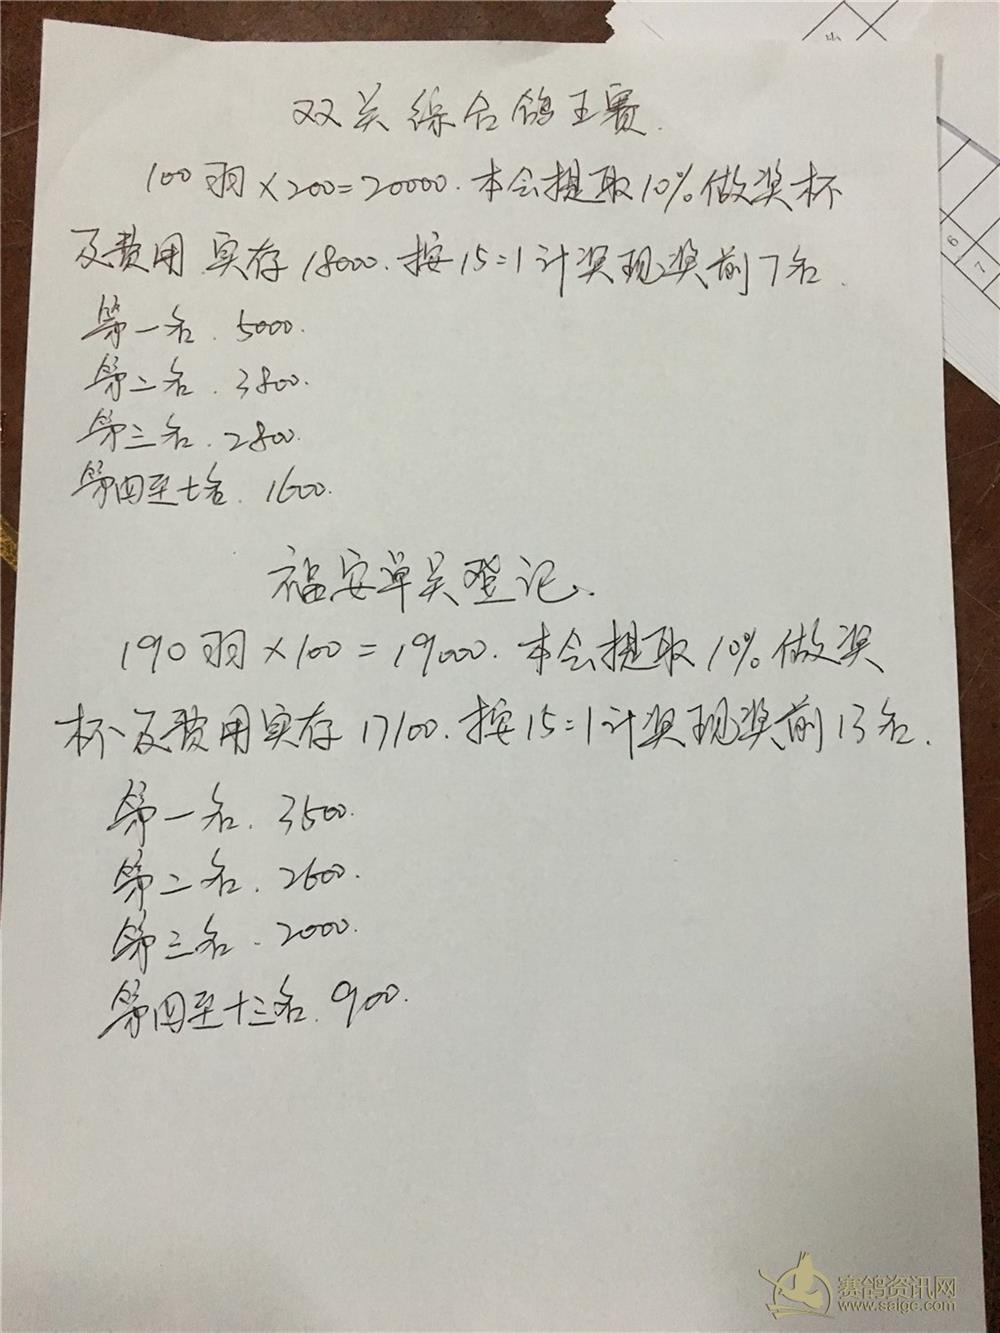 双关综合鸽王赛.
100羽×200=20000.本会提取10%做奖杯
及费用 实存18000.按15=1计奖现奖前7名.
第一名.5000.
第二名.3800.
第三名.2800.
第四至七名.1600.
福安单关登记.
190羽×100=19000.本会提取10%做奖
杯及费用实存17100.按15=1计奖现奖前13名.
第一名.3500.
第二名.2600.
第三名.2000.
第四至十三名.900.
6
7
赛鸽资讯网
www.saigc.com